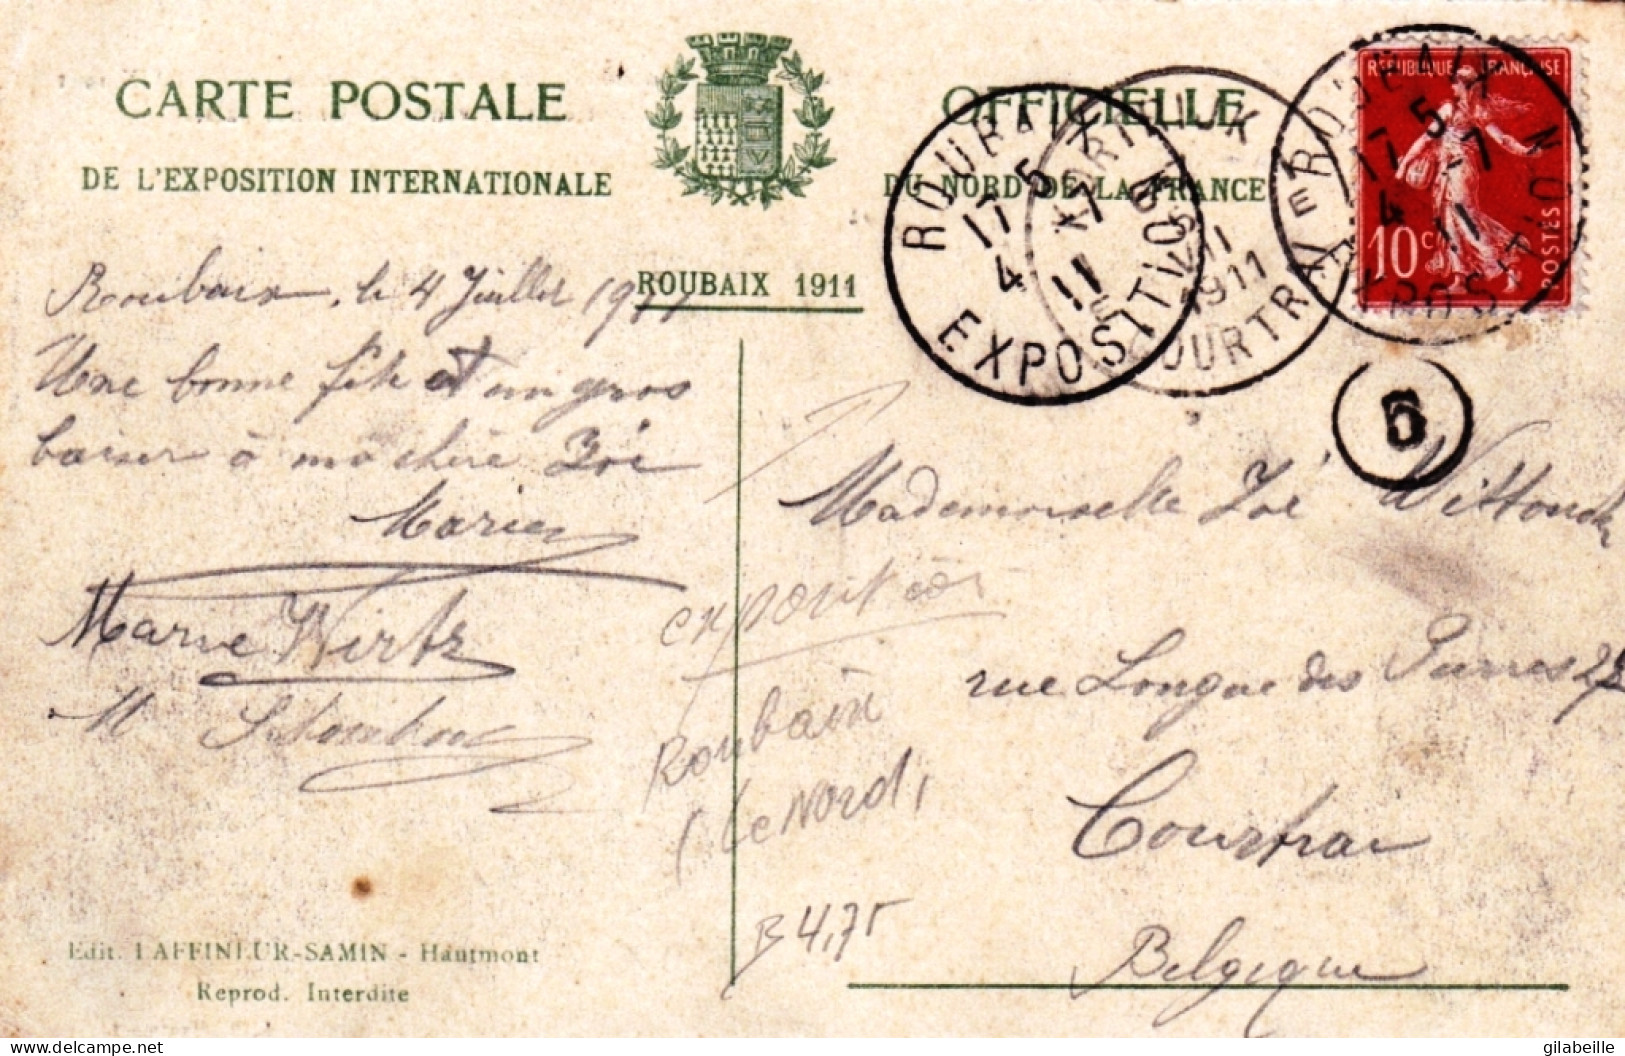 CARTE POSTALE OFFICIELLE
DE L'EXPOSITION INTERNATIONALE DU NORD DE LA FRANCE
ROUBAIX 1911
ROUBAIX EXPOSITION
17 5
4 -7
11
KORTRIJK COURTRAI
1911
ROUBAIX EXPOSITION
17 5
4 -7
11
REPUBLIQUE FRANÇAISE
10 c
POSTES
6
Roubaix, le 4 Juillet 1911
Une bonne fête et un gros
baiser à ma chère Zoé
Marie
Marie Wirtz
M
exposition
Roubaix
(Le Nord)
B 4,75
Mademoiselle Zoé Wittouck
rue Longue des Pierres
Courtrai
Belgique
Edit. LAFFINEUR-SAMIN - Hautmont
Reprod. Interdite
delcampe.net
gilabeille